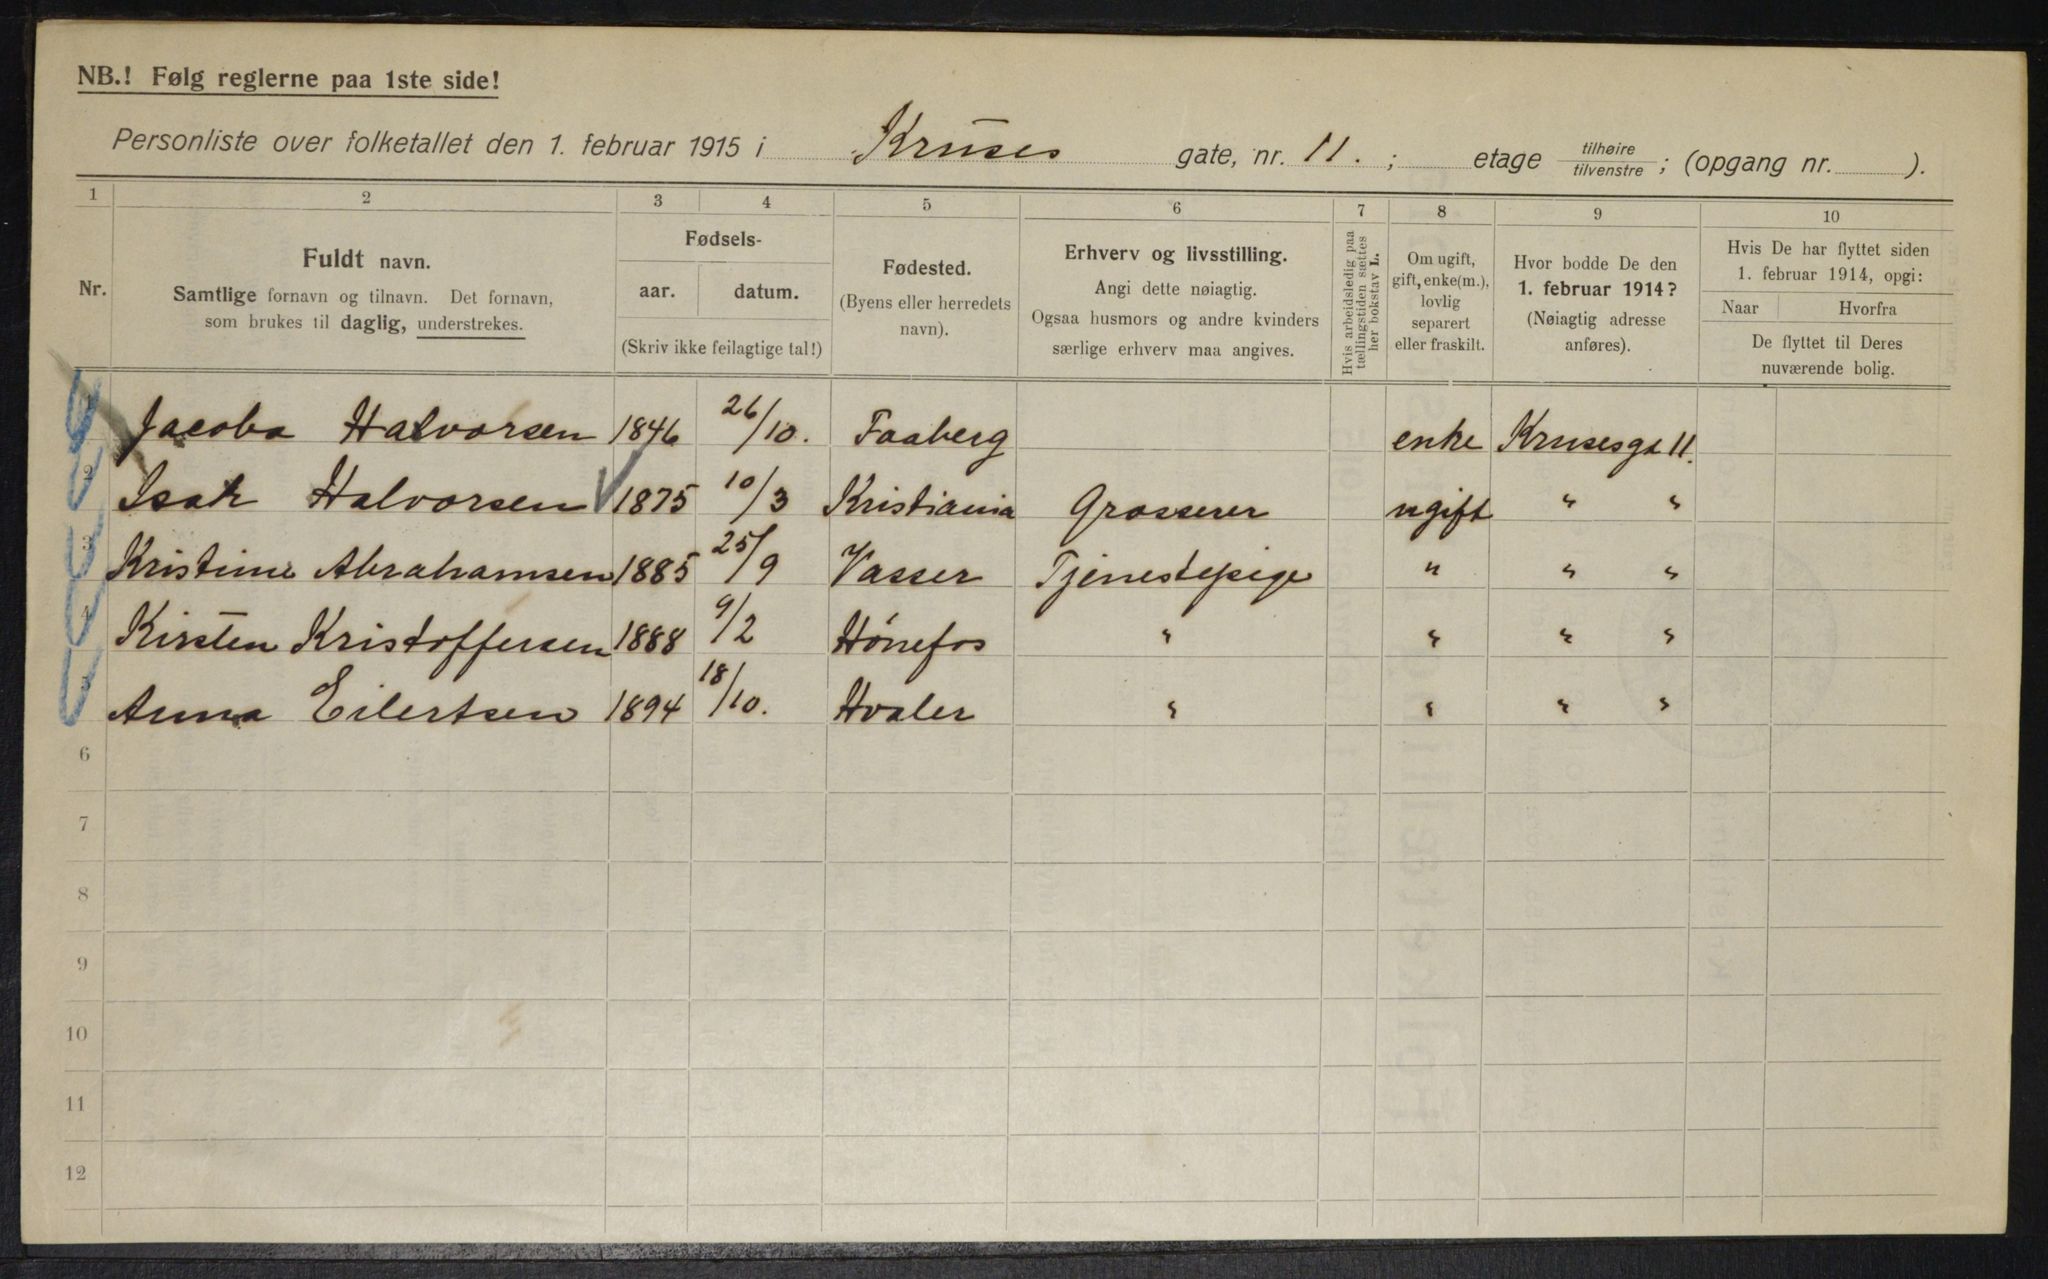 NB.! Følg reglerne paa 1ste side!
Personliste over folketallet den 1. februar 1915 i Kruses gate, nr. 11. ; etage tilhøire/tilvenstre ; (opgang nr. ).
1 2 3 4 5 6 7 8 9 10
Nr.
Fuldt navn.
Samtlige fornavn og tilnavn. Det fornavn,
som brukes til daglig, understrekes.
Fødsels-
aar. datum.
(Skriv ikke feilagtige tal!)
Fødested.
(Byens eller herredets
navn).
Erhverv og livsstilling.
Angi dette nøiagtig.
Ogsaa husmors og andre kvinders
særlige erhverv maa angives.
Hvis arbeidsledig paa
tællingstiden sættes
her bokstav L.
Om ugift,
gift, enke(m.),
lovlig
separert
eller fraskilt.
Hvor bodde De den
1. februar 1914?
(Nøiagtig adresse
anføres).
Hvis De har flyttet siden
1. februar 1914, opgi:
Naar Hvorfra
De flyttet til Deres
nuværende bolig.
1 Jacoba Halvorsen 1846 26/10. Faaberg enke Krusesga 11.
2 Isak Halvorsen 1875 10/3 Kristiania Grosserer ugift " "
3 Kristine Abrahamsen 1885 25/9 Vasser Tjenestepige " " "
4 Kirsten Kristoffersen 1888 9/2 Hónefos " " " "
5 Anna Eilertsen 1894 18/10. Hvaler " " " "
6
7
8
9
10
11
12